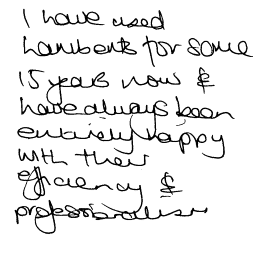 I have used
Lamberts for some
15 years now &
have always been
entirely happy
with their
efficiency &
professionalism